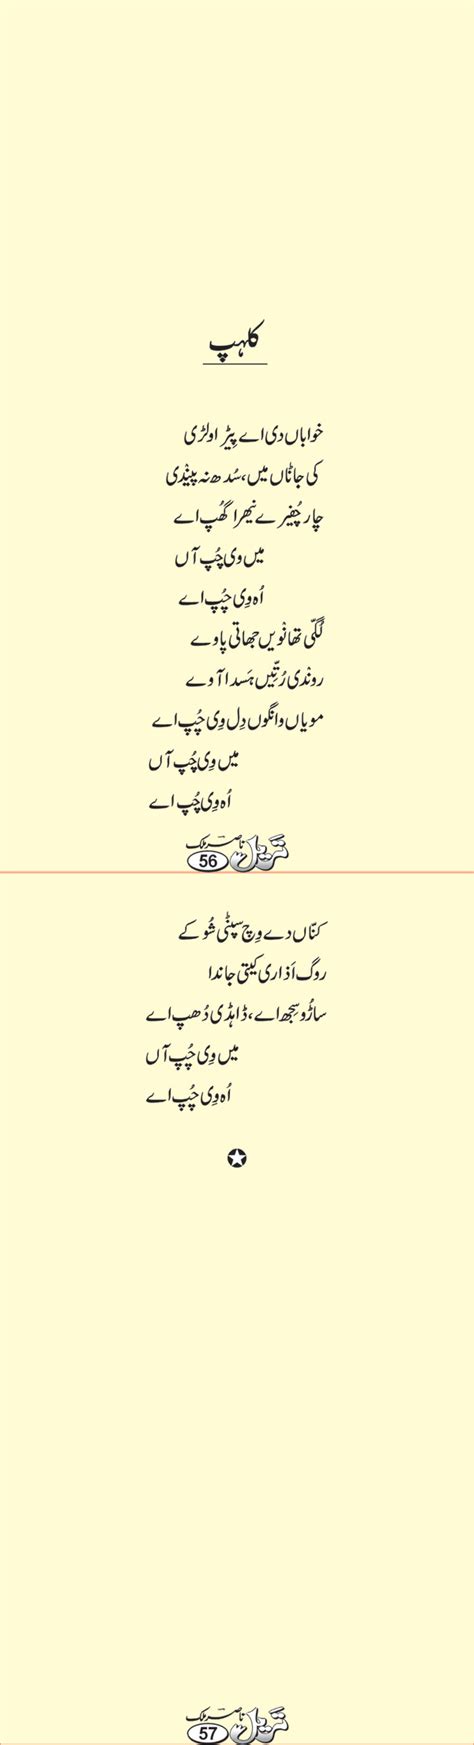 کلہپ
خواباں دی اے پِیڑ اولڑی
کی جاݨاں میں، سُدھ نہ پیندی
چار چُفیرے نیھرا گُھپ اے
میں وی چُپ آں
اُہ وِی چُپ اے
لگّی تھانْویں جھاتی پاوے
روندی رُتِّیں ہَسدا آوے
مویاں وانگوں دِل وِی چُپ اے
میں وِی چُپ آں
اُہ وِی چُپ اے
تریل ناصر ملک
56
کنّاں دے وِچ سپݨی شُوکے
روگ اَذاری کیتی جاندا
ساڑُو سِجھ اے، ڈاہڈی دُھپ اے
میں وِی چُپ آں
اُہ وِی چُپ اے
تریل ناصر ملک
57